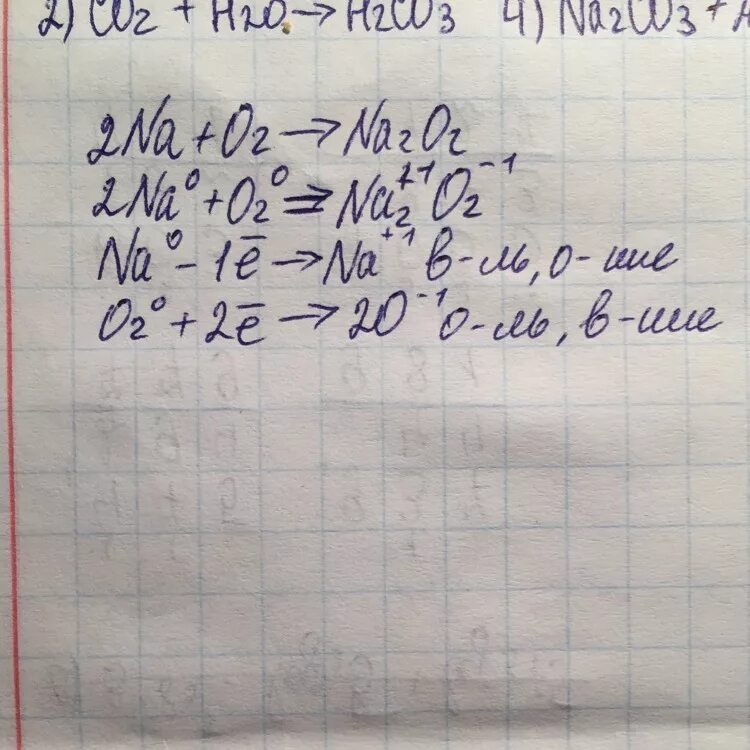 2) CO₂ + H₂O → H₂CO₃ 4) Na₂CO₃ +
2Na + O₂ → Na₂O₂
2Na⁰ + O₂⁰ = Na₂⁺¹O₂⁻¹
Na⁰ - 1ē → Na⁺¹ в-ль, о-ние
O₂⁰ + 2ē → 2O⁻¹ о-ль, в-ние